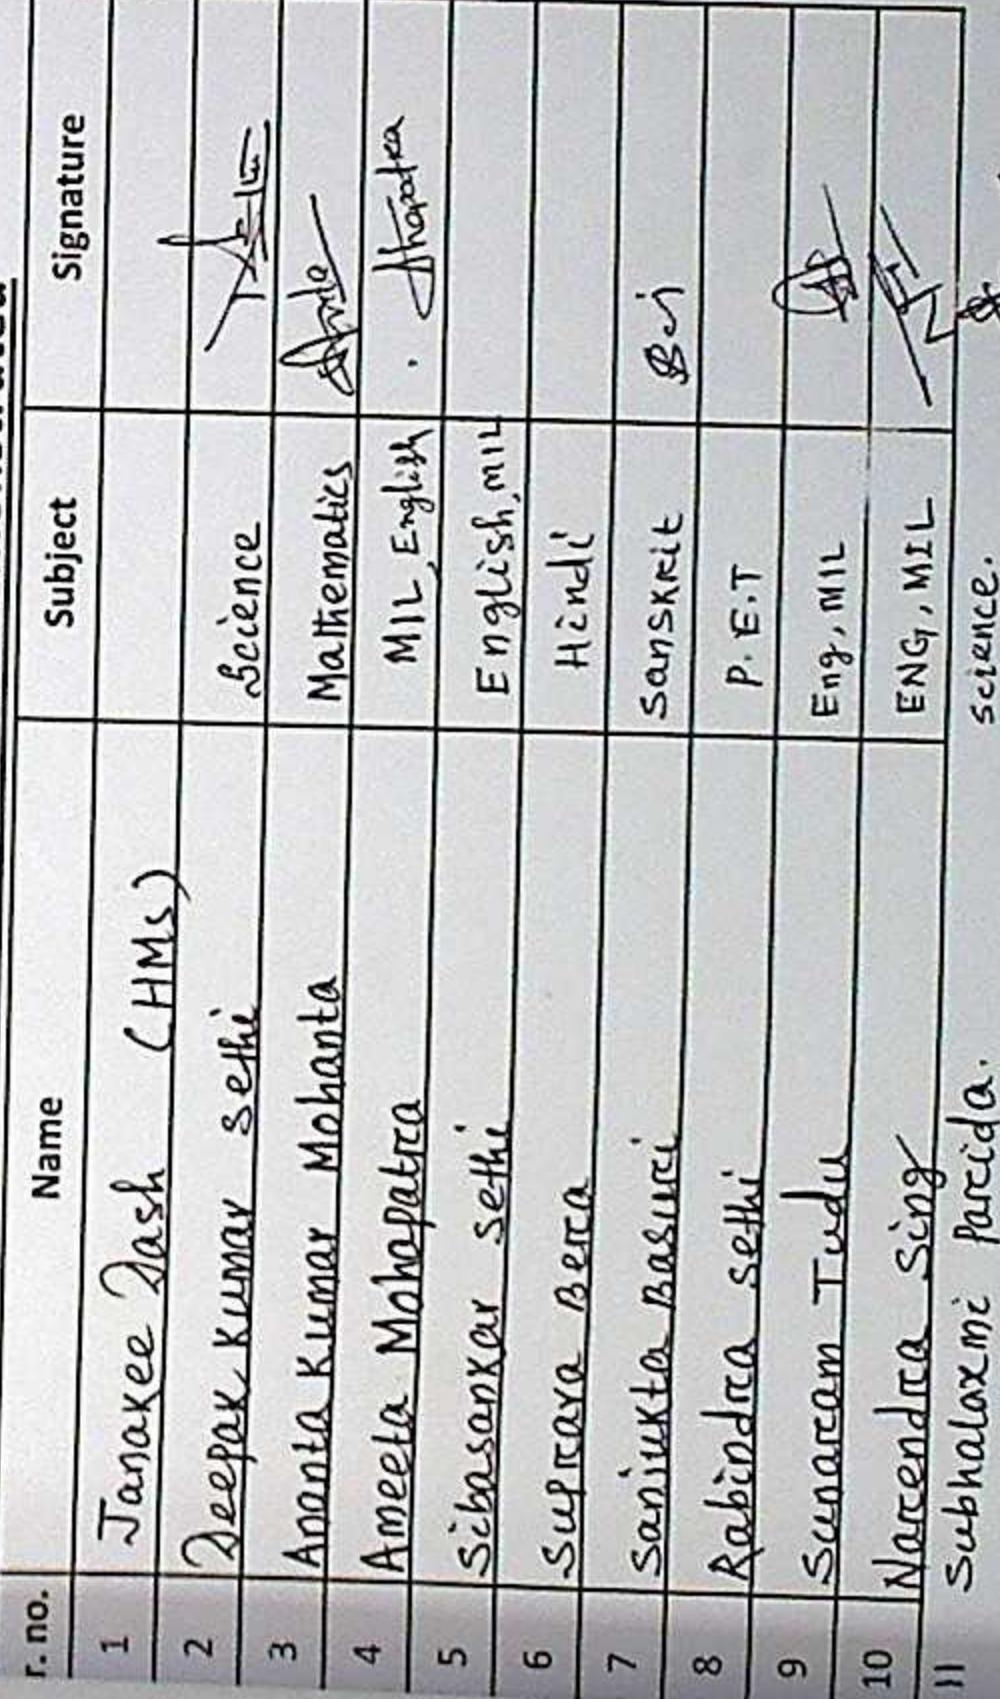 r. no. Name Subject Signature
1 Janakee Dash (HMs)
2 Deepak Kumar Sethi Science
3 Ananta Kumar Mohanta Mathematics
4 Ameeta Mohapatra MIL, English
5 Sibasankar Sethi English, MIL
6 Suprava Bera Hindi
7 Sanjukta Basuri Sanskrit
8 Rabindra Sethi P.E.T
9 Sunaram Tudu Eng, MIL
10 Narendra Sing ENG, MIL
11 Subhalaxmi Parida. Science.